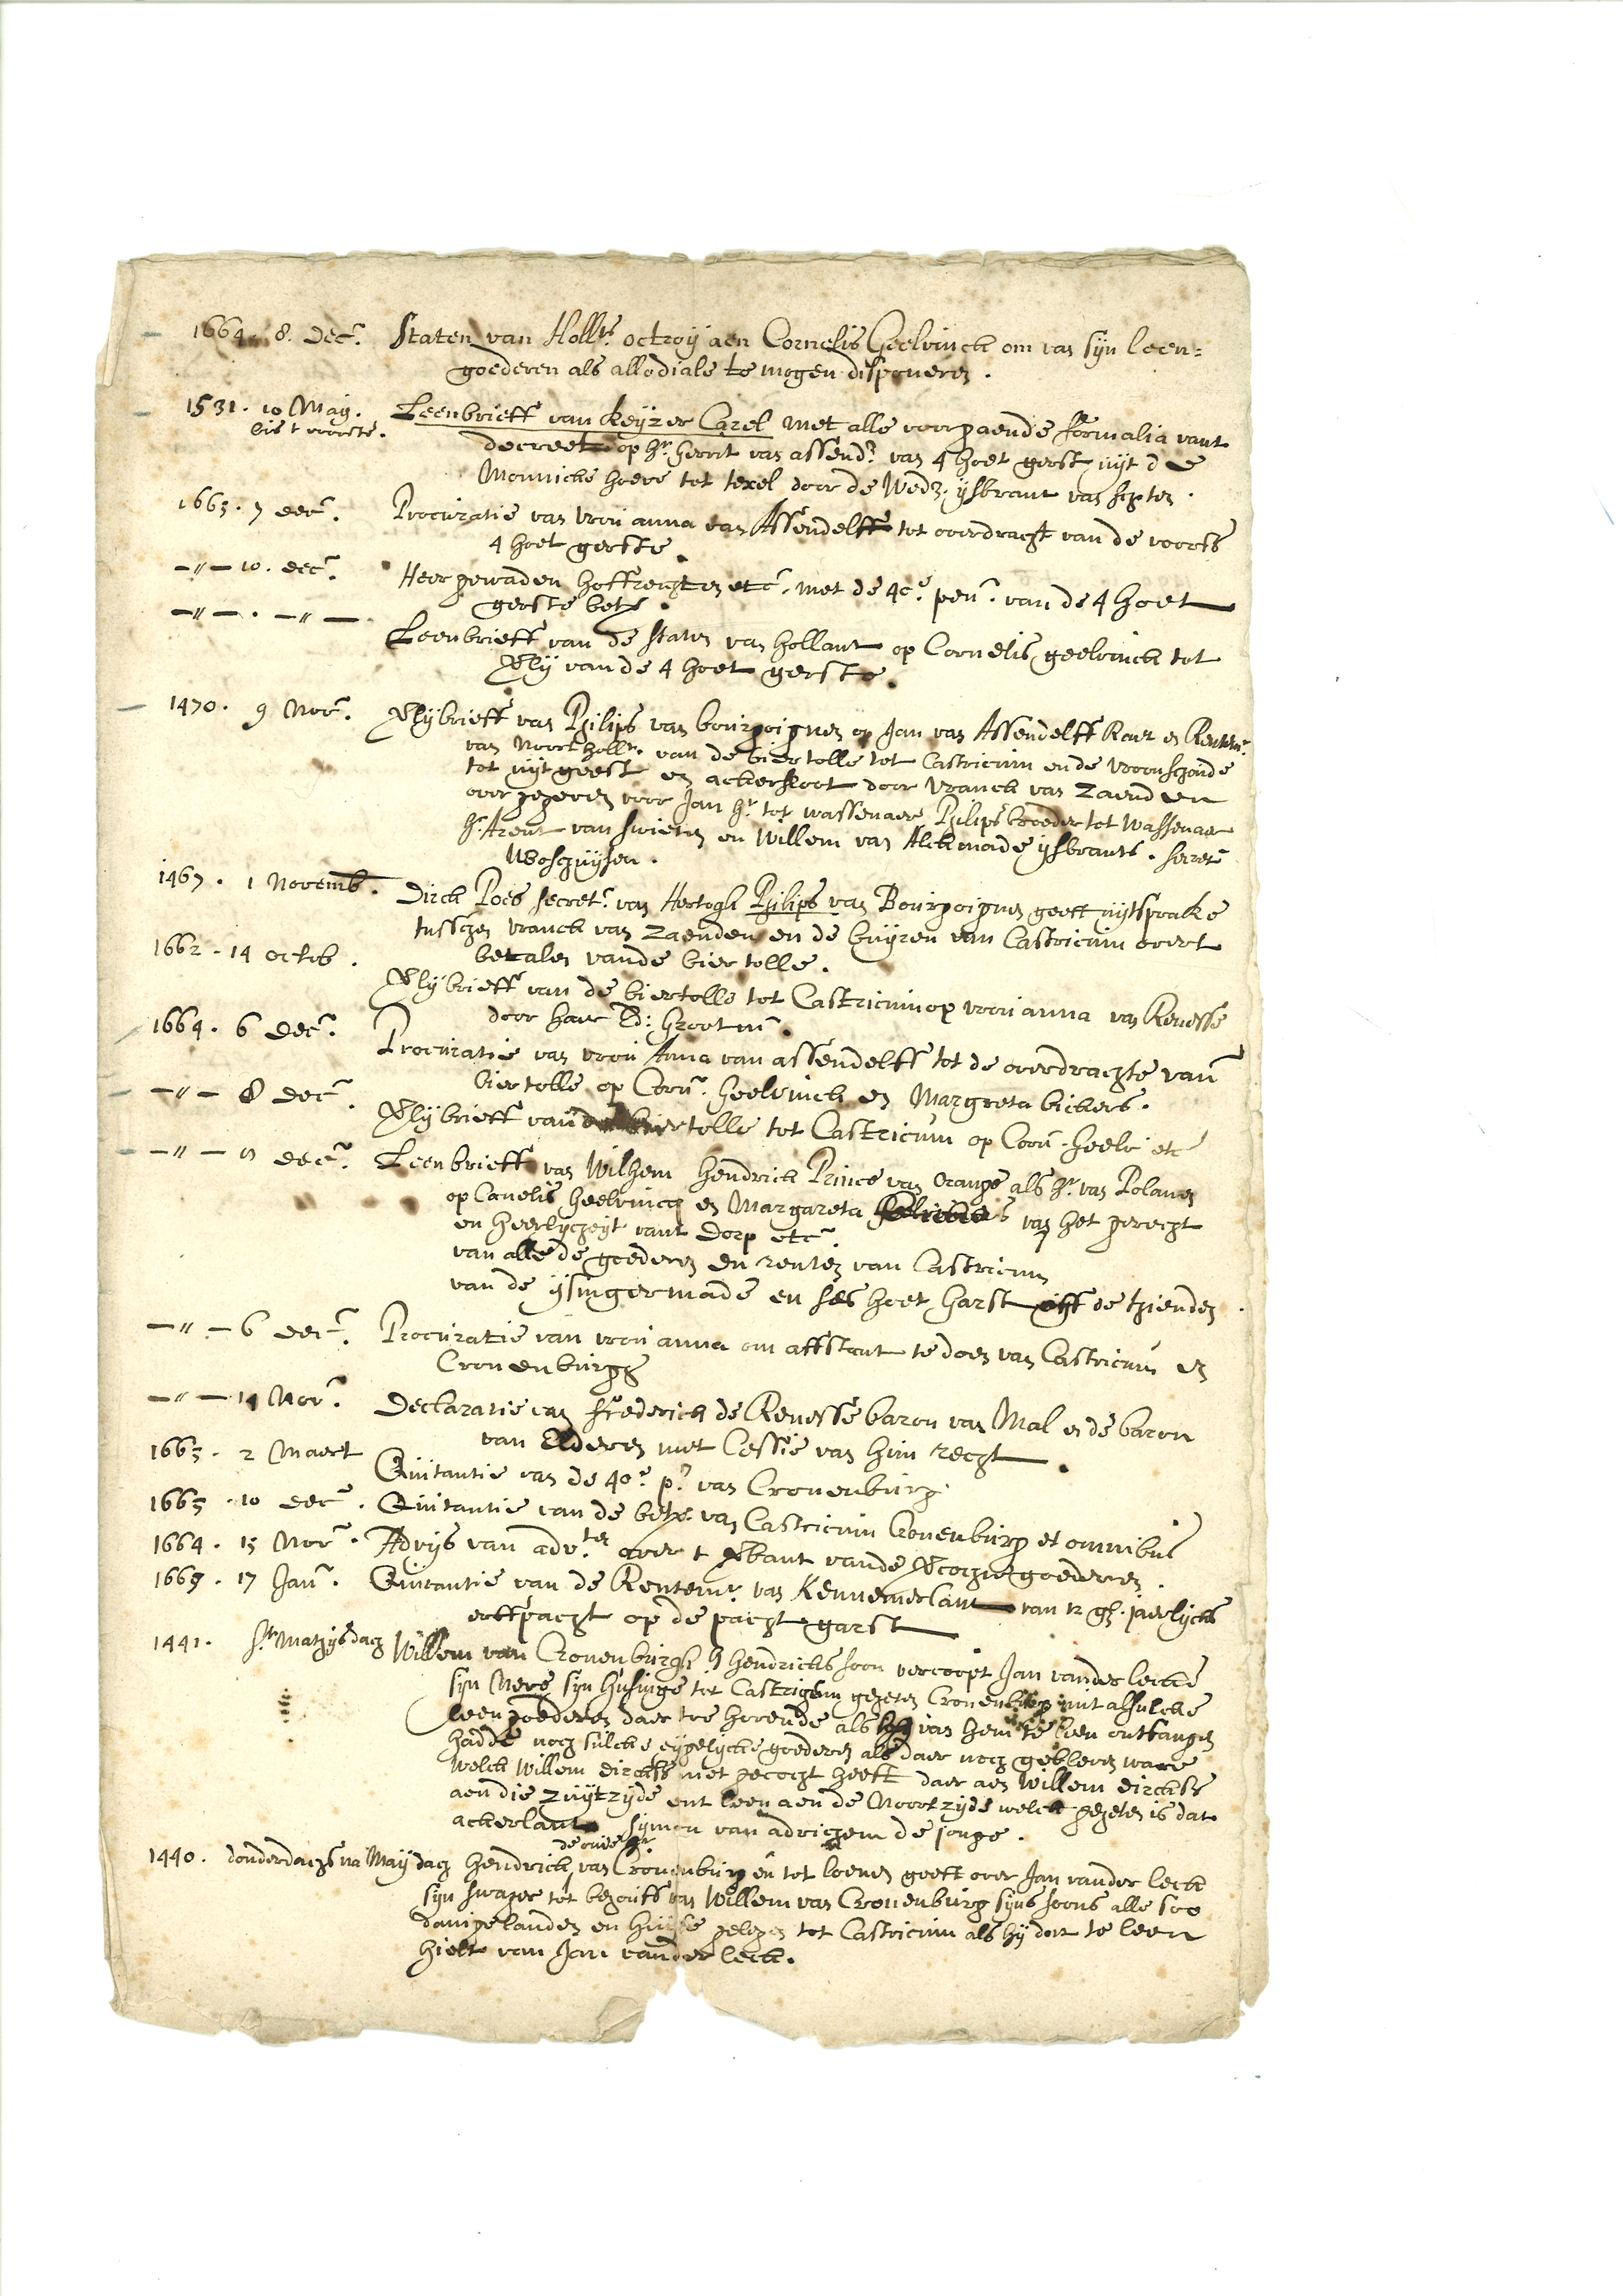 1664. 8. Dec. Staten van Hollt. octroy aen Cornelis Geelvinck om van sijn leen=
goederen als allodiale te mogen disponeren.
1531. 10 May. Leenbrieff van Keyzer Carel met alle voorgaende formalia vant
decreet op hr. Gerrit van assend. van 4 hoet gerst uijt de
Monnicke hoeve tot texel door de Wed. ijsbrant van
1665. 7 dec. Procuratie van vrou anna van Assendelff tot overdracht van de voors
4 hoet gerste.
—"— 10. dec. Heer gewaden hoffrechten etc. met de 40e. pen. van de 4 hoet
gerste
—"— . —"— Leenbrieff van de staten van hollant op Cornelis geelvinck tot
van de 4 hoet gerste.
1470. 9 Nov. Vlybrieff van Philips van bourgoignen op Jan van Assendelff Raet en Rentmr.
van Noort hollt. van de biertolle tot Castricum ende vroonschoude
tot uijtgeest en ackersloot door Vranck van Zaenden
overgegeven voor Jan hr. tot wassenaer Philips broeder tot Wassenaer
hr. Arent van swieten en Willem van Alckmade ijsbrants. secret

1467. 1 Novemb. Dirck Poes secret. van Hertogh Philips van Bourgoignen geeft uijtsprake
tusschen Vranck van Zaenden en de buyren van Castricum overt
betalen vande biertolle.
1662. 14 octob. Vlybrieff van de biertolle tot Castricum op vrou anna van Renesse
door haer Ed: Grootmr.
1664. 6 Dec. Procuratie van vrou Anna van assendelff tot de overdrachte van
biertolle op Corn. Geelvinck en Margreta bickers.
—"— 8 Dec. Vlybrieff van de biertolle tot Castricum op Corn. Geelv. etc
—"— dec. Leenbrieff van Wilhem Hendrick Prince van Orange als hr. van Polanen
op Cornelis Geelvinck en Margareta van het gerecht
en heerlycheyt vant Dorp etc.
van alle de goederen en renten van Castricum
van de ijsingermade en ses hoet Garst de thienden.
—"— 6 dec. Procuratie van vrou anna om affstant te doen van Castricum en
Cronenburgh
—"— 14 Nov. Declaratie van frederick de Renesse baron van Mal en de baron
van Elderen met Cessie van hun recht.
1665. 2 Maert Quitantie van de 40e. p. van Cronenburg.
1665. 10 dec. Quitantie van de van Castricum Cronenburg et omnibus
1664. 15 Nov. Advijs van adv.ten over t vande goederen.
1669. 17 Jan. Quitantie van de Rentemr. van Kennemerlant van 12 jaerlycks
erffpacht op de pacht garst
1441. St Mathijsdach Willem van Cronenburgh Hendricks soon vercoopt Jan vander lecke
sijn Neve sijn husinge tot Castrigem geheten Cronenburg mit alsulcke
leengoederen daer toe horende als hij van hem te leen ontfangen
hadde noch sulcke eijgelycke goederen als daer noch gebleven ware
welck Willem dircksz met gecocht heeft daer aen Willem dircksz
aen die zuijtzyde ent leen aen de Noortzijde welck geheten is dat
ackerlant Symon van adrichem de jonge.
1440. donderdachs na Maij dach Hendrick van Cronenburg de oude hr en tot loenen geeft over Jan vander leck
sijn swager tot behouff van Willem van Cronenburg syns soons alle soo
danige landen en huijse gelegen tot Castricum als hij dat te leen
hielt van Jan vander leck.